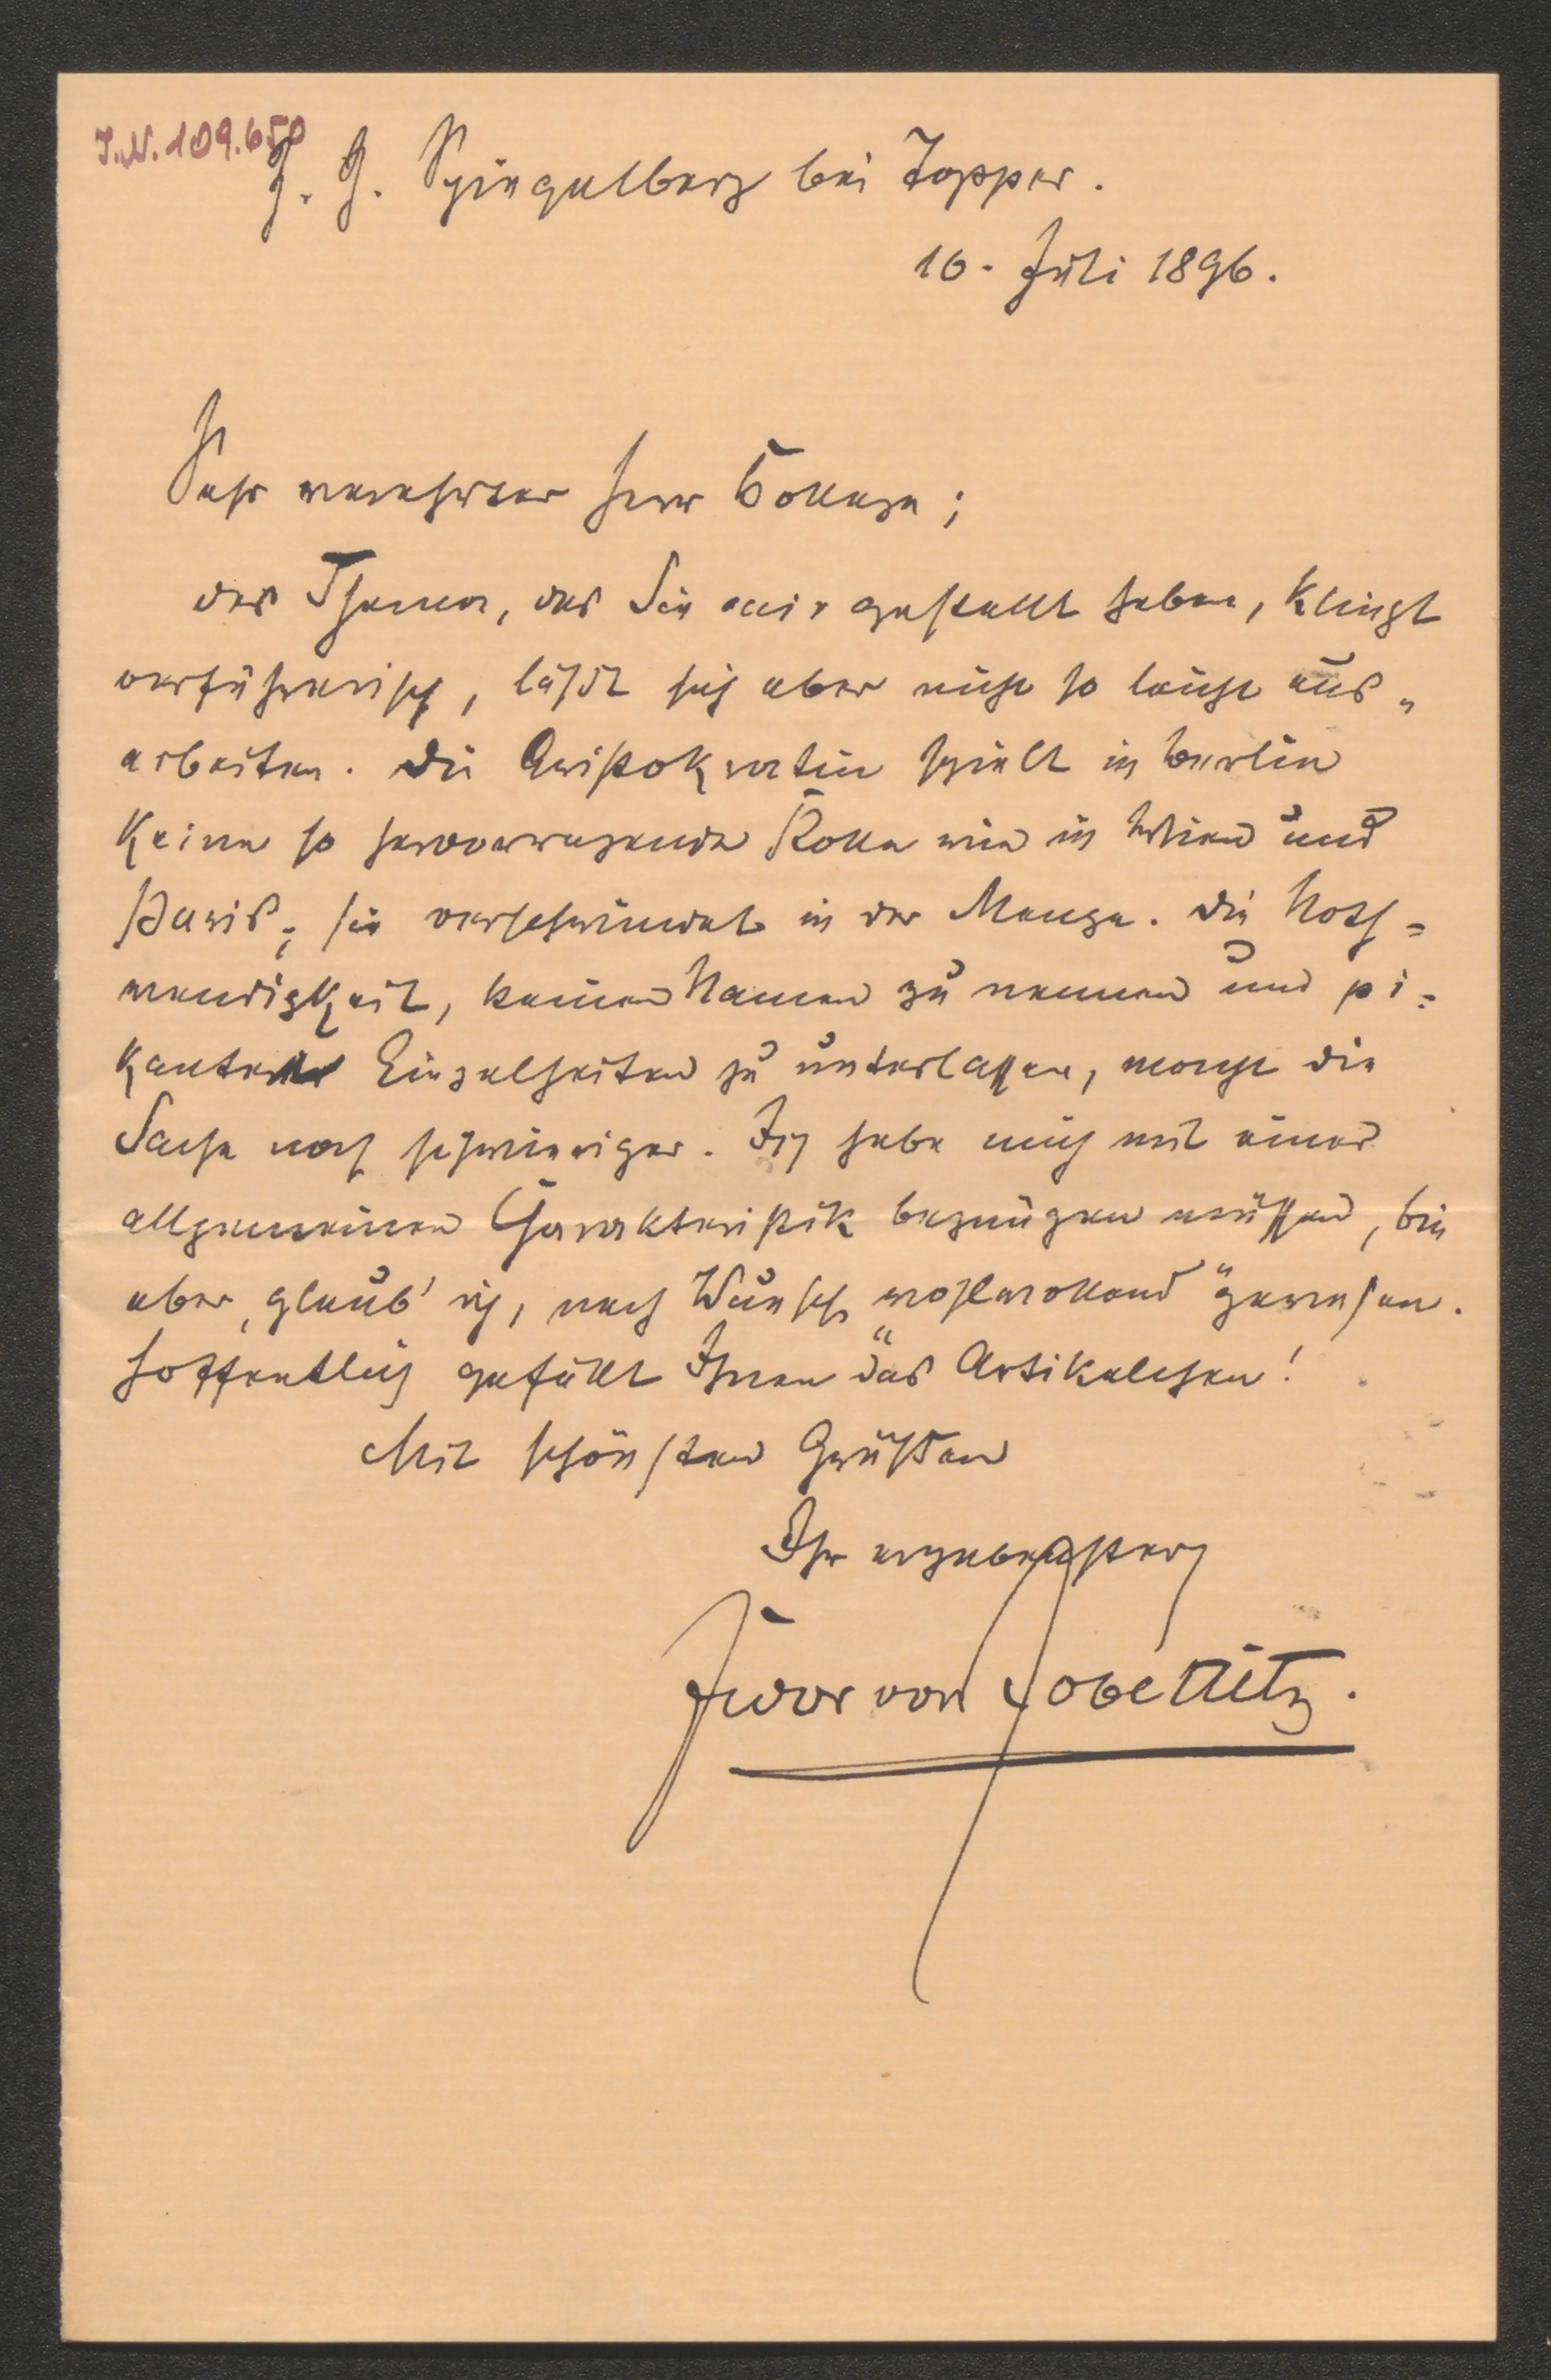 J.N. 109.650
z. Z. Spiegelberg bei Topper.
16. Juli 1896.
Sehr verehrter Herr College;
das Thema, das Sie mir gestellt haben, klingt
verführerisch, läßt sich aber nicht so leicht aus„
arbeiten. Die Aristokratin spielt in Berlin
keine so hervorragende Rolle wie in Wien und
Paris; sie verschwindet in der Menge. Die Noth=
wendigkeit, keinen Namen zu nennen und pi=
kante Einzelheiten zu unterlassen, macht die
Sache noch schwieriger. Ich habe mich mit einer
allgemeinen Charakteristik begnügen müssen, bin
aber, glaub' ich, nach Wunsch „wohlwollend“ gewesen.
Hoffentlich gefällt Ihnen das Artikelchen!
Mit schönsten Grüßen
Ihr ergebenster
Fedor von Zobeltitz.